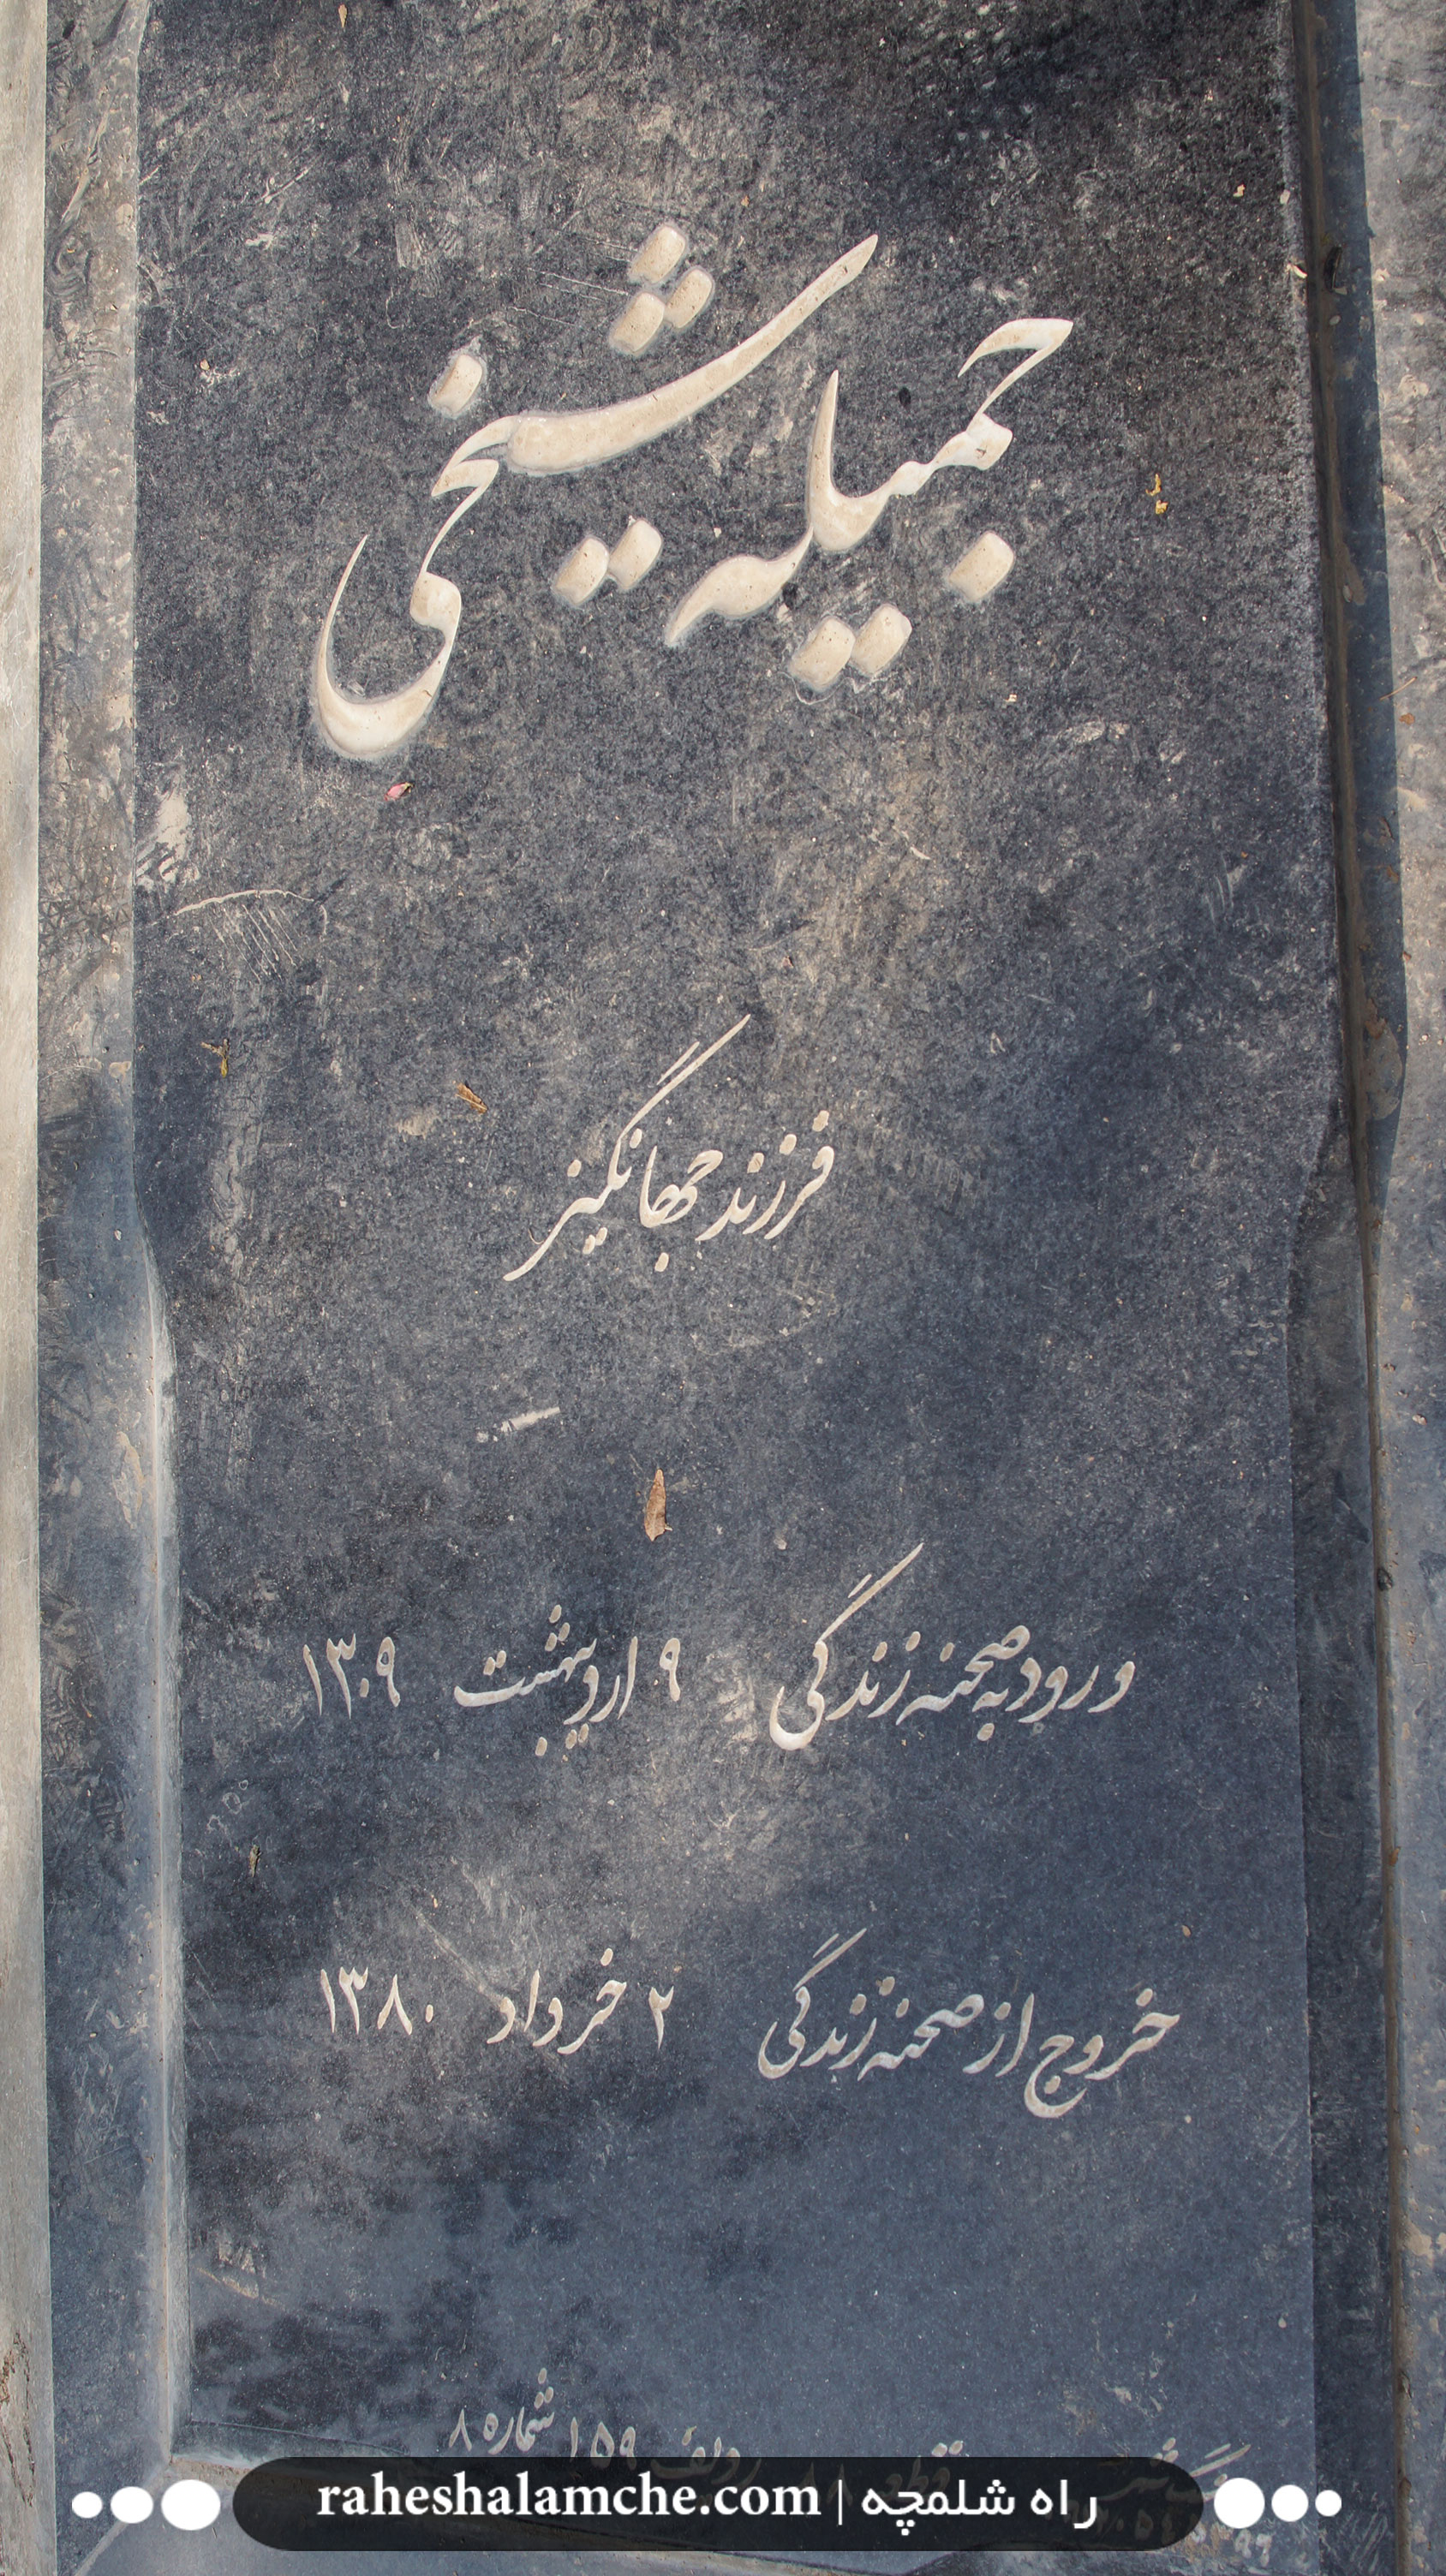 جمیله شیخی
فرزند جهانگیز
ورود به صحنه زندگی ۹ اردیبهشت ۱۳۰۹
خروج از صحنه زندگی ۲ خرداد ۱۳۸۰
قطعه ۸۸ ردیف ۱۵۹ شماره ۸
راه شلمچه | raheshalamche.com